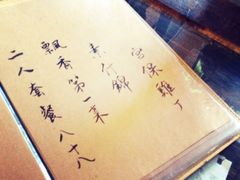 宮保雞丁
素什錦
飄香第一菜
二人套餐八十八